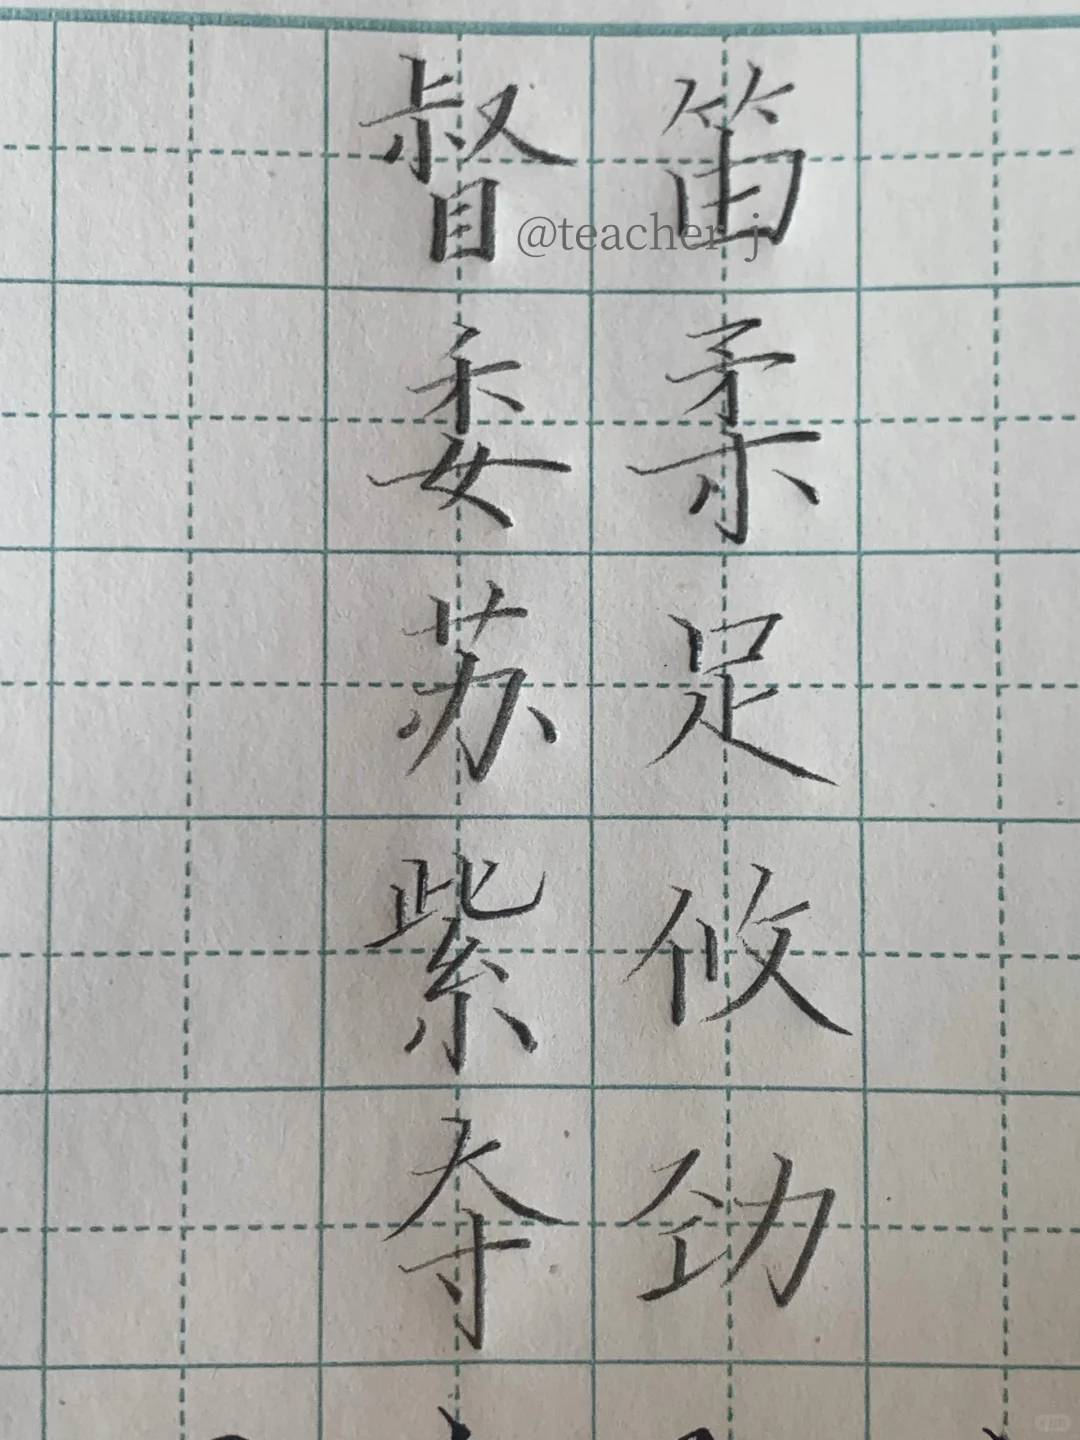 笛柔足攸劲
督委苏紫夺
@teacher j